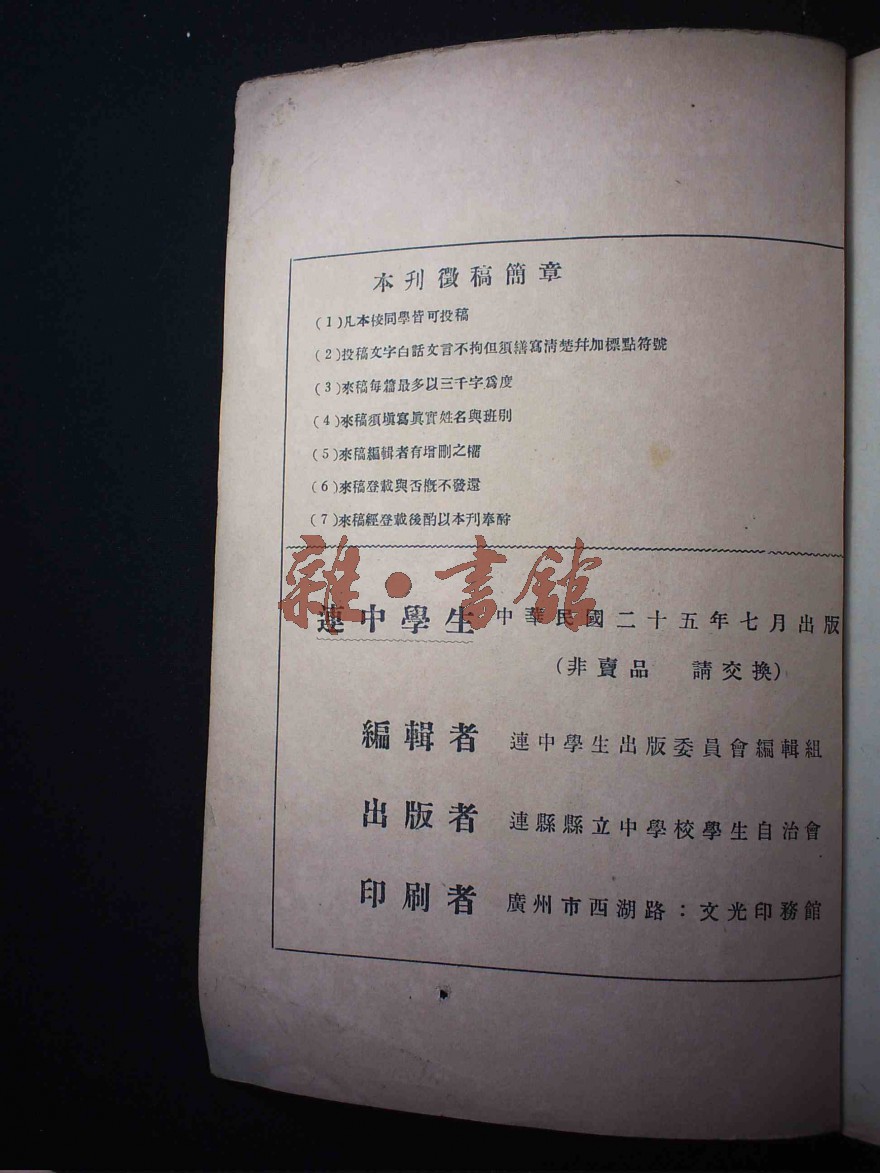 本刊徵稿簡章
(1)凡本校同學皆可投稿
(2)投稿文字白話文言不拘但須繕寫清楚幷加標點符號
(3)來稿每篇最多以三千字爲度
(4)來稿須塡寫眞實姓名與班別
(5)來稿編輯者有增刪之權
(6)來稿登載與否槪不發還
(7)來稿經登載後酌以本刊奉酧
雜·書館
連中學生 中華民國二十五年七月出版
(非賣品 請交換)
編輯者 連中學生出版委員會編輯組
出版者 連縣縣立中學校學生自治會
印刷者 廣州市西湖路：文光印務館